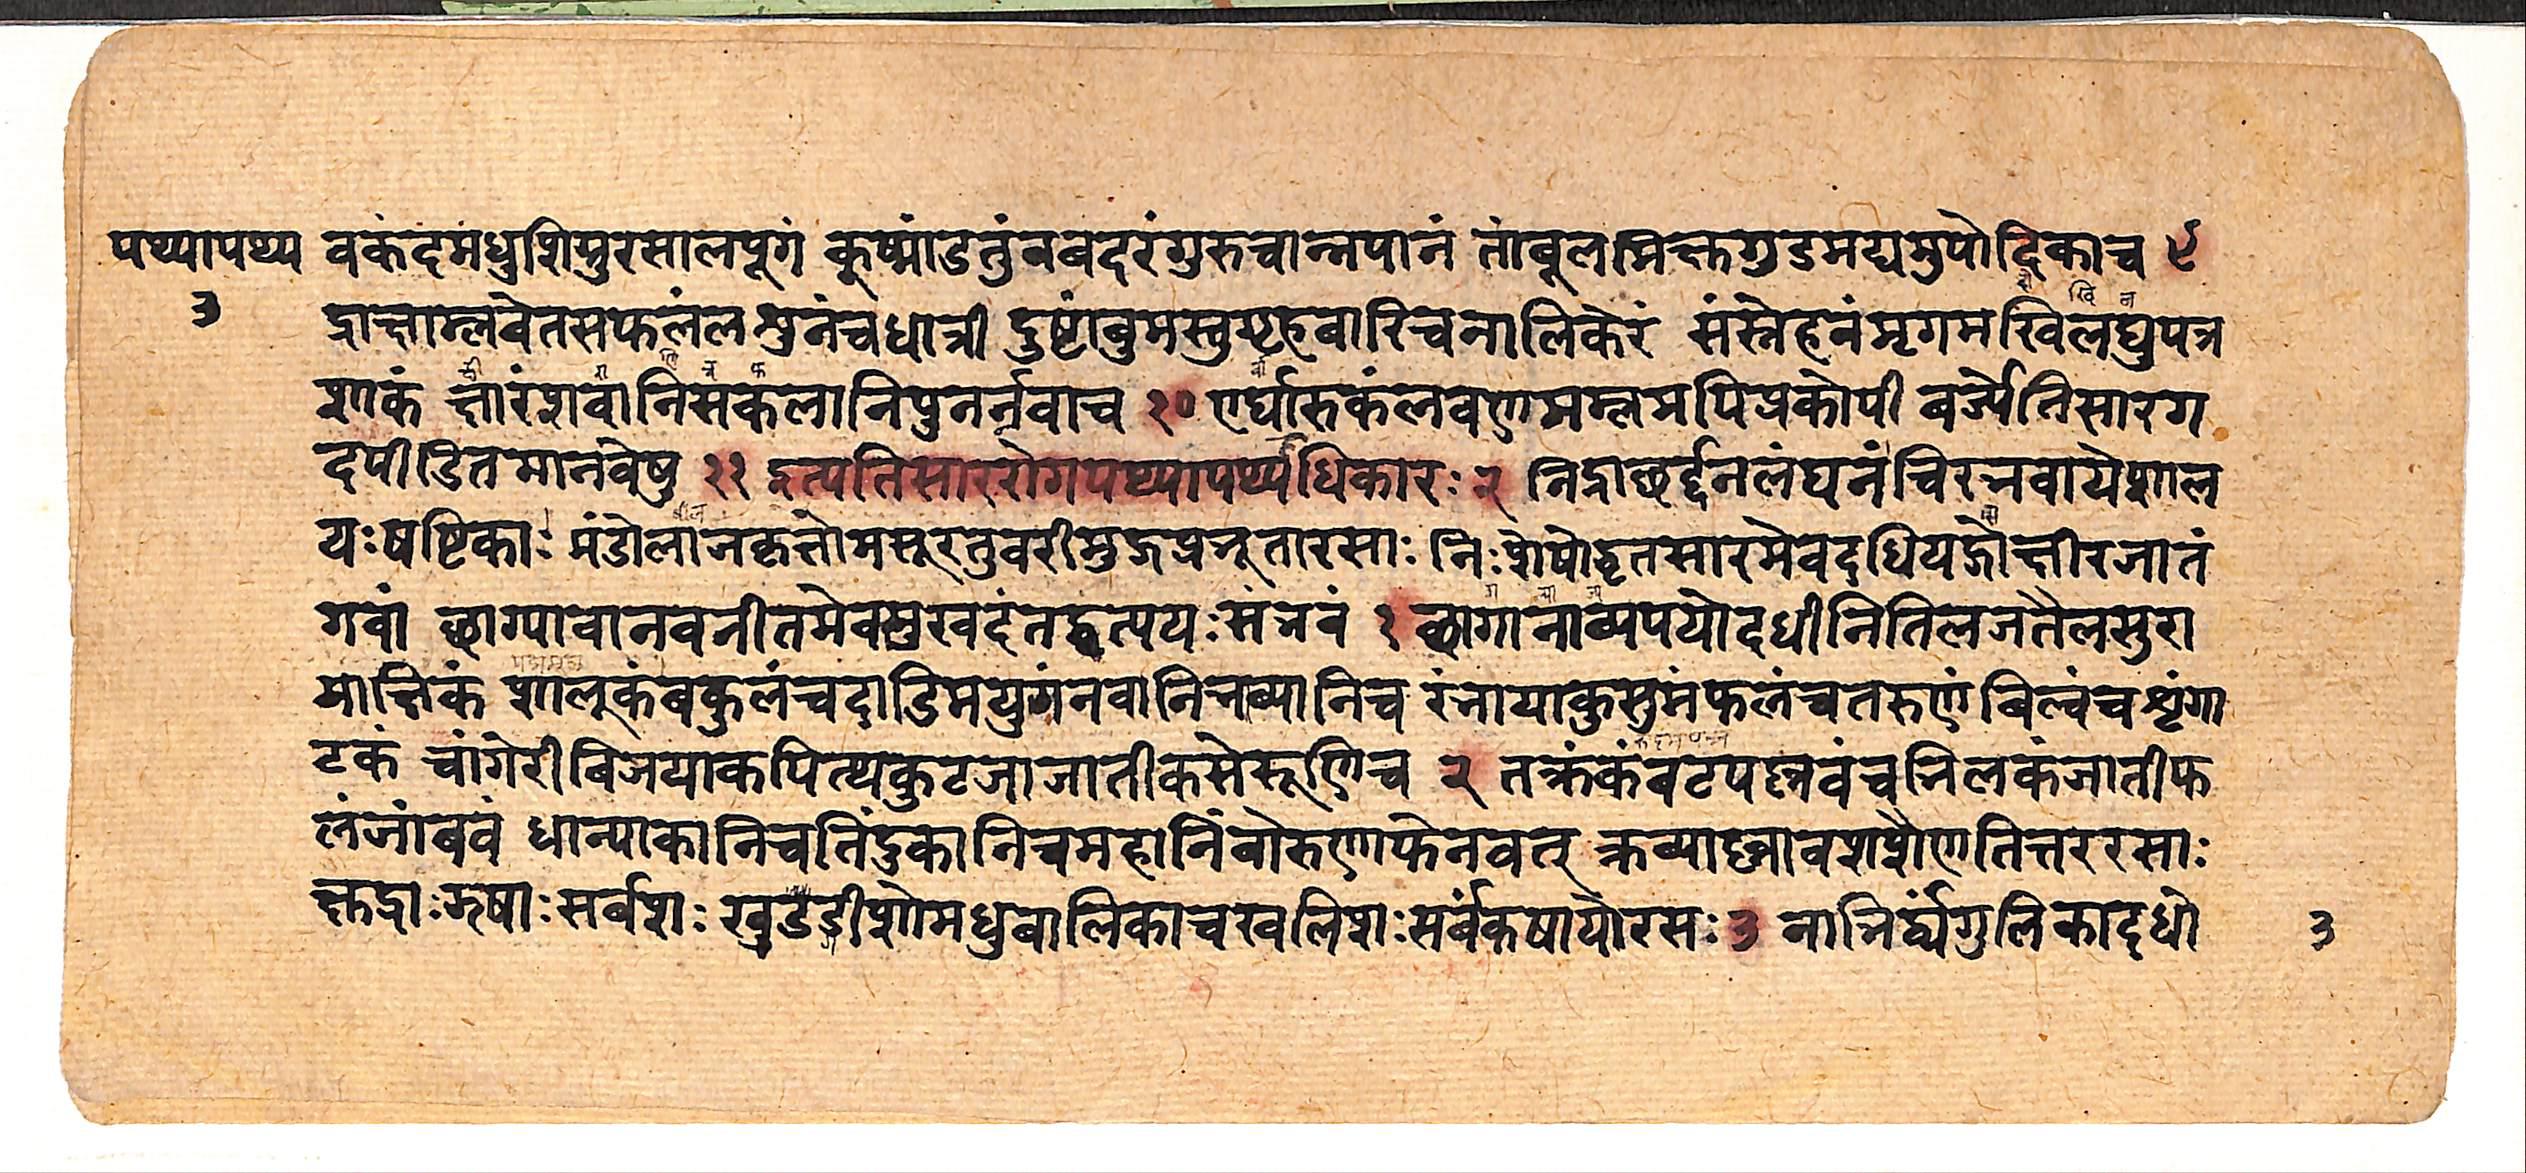 पथ्यापथ्य
३
वकंदमधुशिग्रुरसालपूगं कूष्मांडतुंबबदरंगुरुचान्नपानं तांबूलमिक्षुगुडमद्यमुपोदिकाच ९
द्राक्षाम्लवेतसफलंलशुनंचधात्री दुष्टांबुमस्तुगृहवारिचनालिकेरं संस्नेहनंमृगमखिलघुपत्र
शाकं क्षारंशवानिसकलानिपुनर्नवाच १० एर्घारुकंलवणमम्लमपिप्रकोपी बर्ज्येतिसारग
दपीडितमानवेषु ११ इत्यतिसाररोगपथ्यापथ्यधिकारः २ निद्राछर्द्दनलंघनंचिरनवायेशाल
यःषष्टिकाः मंडोलाजकृत्तोमसूरतुवरीमुजप्रभूतारसाः निःशेषोद्धृतसारमेवदधियज्ञोक्षीरजातं
गवां छाग्यावानवनीतमेवसुखदंतद्वत्पयःसंभवं १ छागानाव्यपयोदधीनितिलजतैलसुरा
माक्षिकं शालूकंबकुलंचदाडिमयुगंनवानिभव्यानिच रंभायाकुसुमंफलंचतरुणंबिल्वंचशृंगा
टकं चांगेरीबिजयाकपित्थकुटजाजातीकसेरूणिच २ तक्रंकंबटपल्लवंचतिलकंजातीफ
लंजांबवं धान्याकानिचतिंदुकानिचमहानिंबोरुणाफेनवत् क्रव्याल्लावशशैणतित्तररसाः
क्षुद्राःझषाःसर्बशः खुडडीशोमधुबालिकाचखलिशःसर्बकषायोरसः३ नाभिर्द्ध्यंगुलिकादधो
३